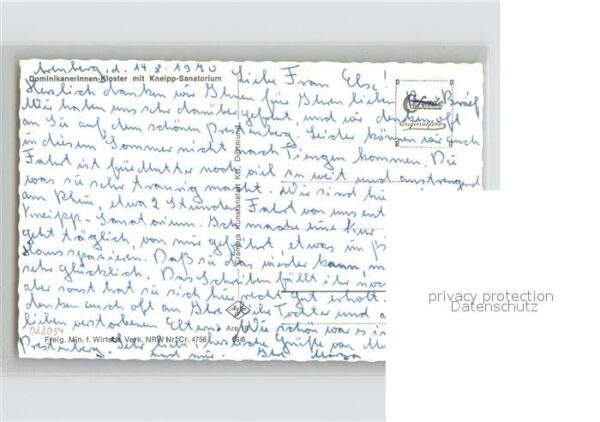 Arenberg, d. 14.8.1970
Dominikanerinnen-Kloster mit Kneipp-Sanatorium
Liebe Frau Else!
Herzlich danken wir Ihnen für Ihren lieben Brief
Wir haben uns sehr darüber gefreut, und wir denken oft
an Sie auf dem schönen Prestenberg. Leider können wir auch
in diesem Sommer nicht nach Tiengen kommen. Die
Fahrt ist für Mutter noch viel zu weit und anstrengend
was sie sehr traurig macht. Wir sind hier
am Rhein, etwa 2 Stunden Fahrt von uns ent
Kneipp-Sanatorium. Ich mache eine Kur
geht täglich, von mir geführt, etwas im
Haus spazieren. Daß sie das wieder kann, m
sehr glücklich. Das Schreiben fällt ihr noch
aber sonst hat sie sich hier recht gut erholt.
denken auch oft an Ihre Tochter und
lieben verstorbenen Eltern. Wie schön war es in
Prestenberg. Sehr herzliche Grüße von
und mir. Ihre
Cramers Kunstanstalt KG, Dortmund
Agfa
Are 10
Freig. Min. f. Wirtsch. Verk. NRW Nr. Cr. 4756
privacy protection
Datenschutz